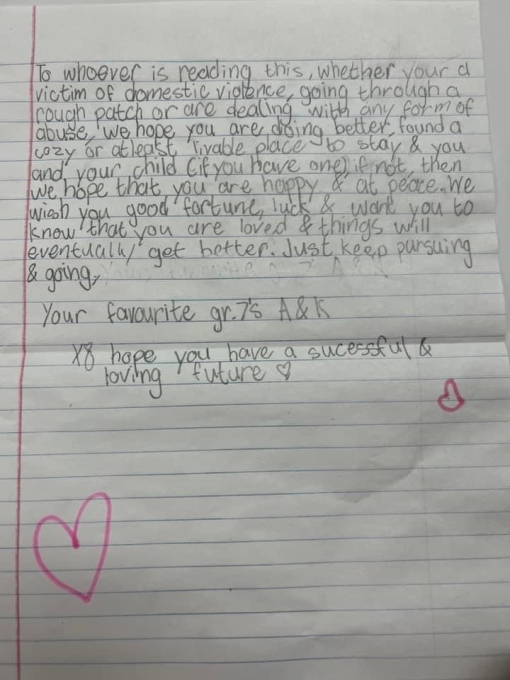 To whoever is reading this, whether your a
victim of domestic violence, going through a
rough patch or are dealing with any form of
abuse, we hope you are doing better, found a
cozy or atleast livable place to stay & you
and your child (if you have one), if not, then
we hope that you are happy & at peace. We
wish you good fortune, luck & want you to
know that you are loved & things will
eventually get better. Just keep pursuing
& going,
Your favourite gr.7's A&K
hope you have a sucessful &
loving future ♡